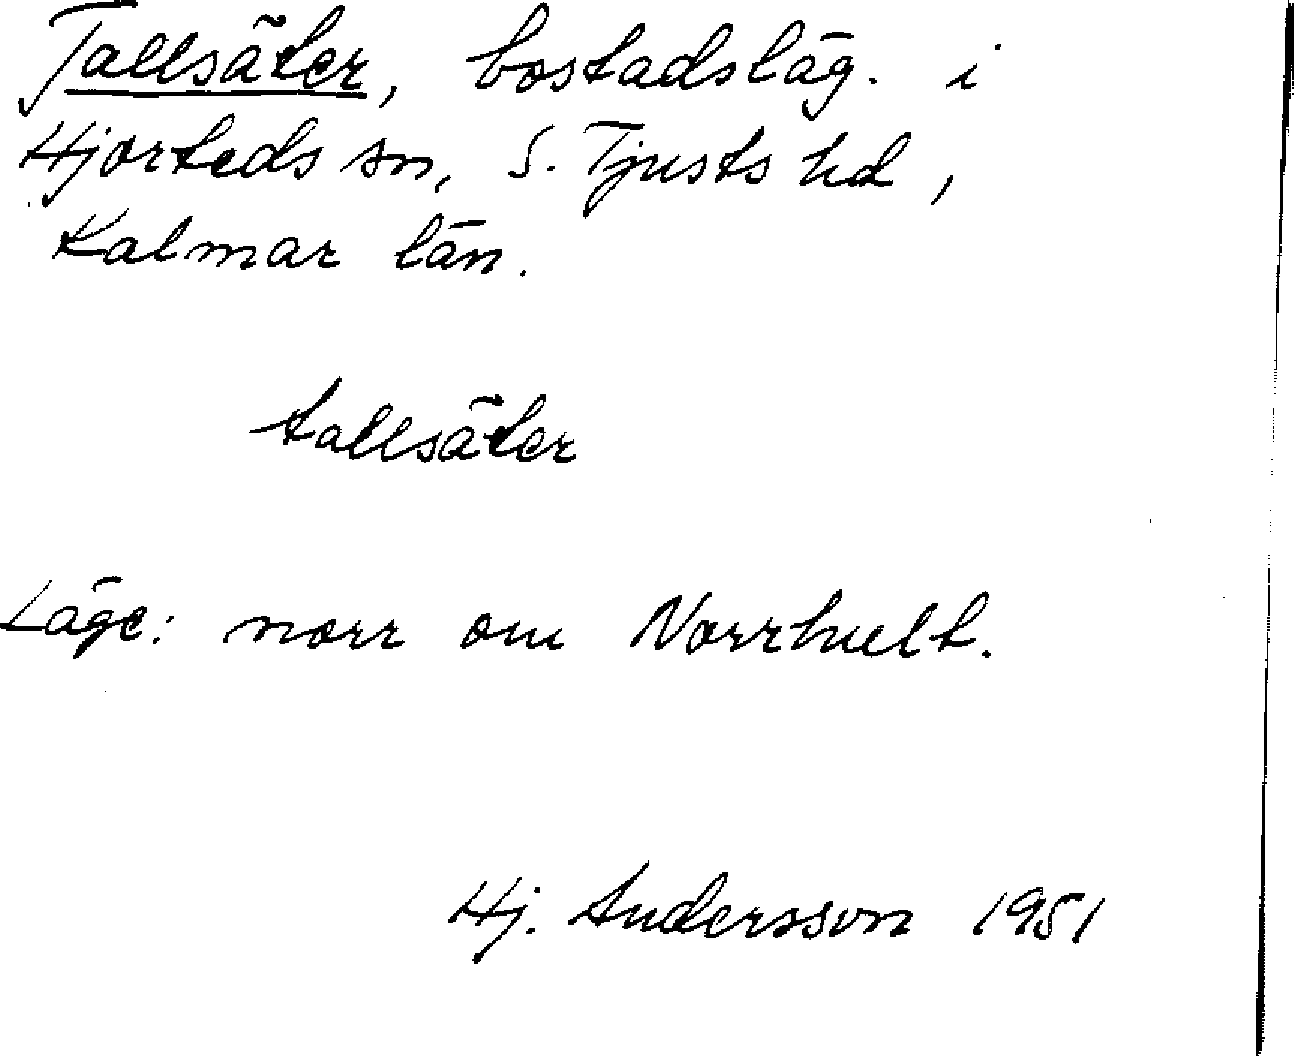 Tallsäter, bostadsläg. i
Hjorteds sn, S. Tjusts hd,
Kalmar län.
tallsäter
Läge: norr om Norrhult.
Hj. Andersson 1951